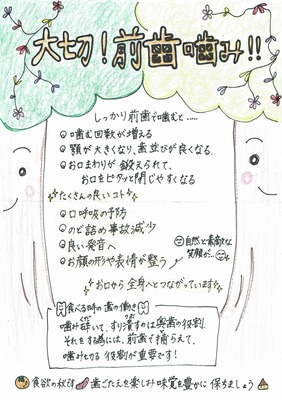 大切!前歯噛み!!
しっかり前歯で噛むと.....
噛む回数が増える
顎が大きくなり、歯並びが良くなる
お口まわりが鍛えられて、
お口をピタッと閉じやすくなる
たくさんの良いコト
口呼吸の予防
のど詰め事故減少
良い発音へ
お顔の形や表情が整う
自然と素敵な
笑顔が…
お口から全身へとつながっています
食べる時の歯の働き
噛み砕いて、すり潰すのは奥歯の役割。
それをする為には、前歯で捕らえて、
噛み切る役割が重要です!
食欲の秋です
歯ごたえを楽しみ味覚を豊かに保ちましょう